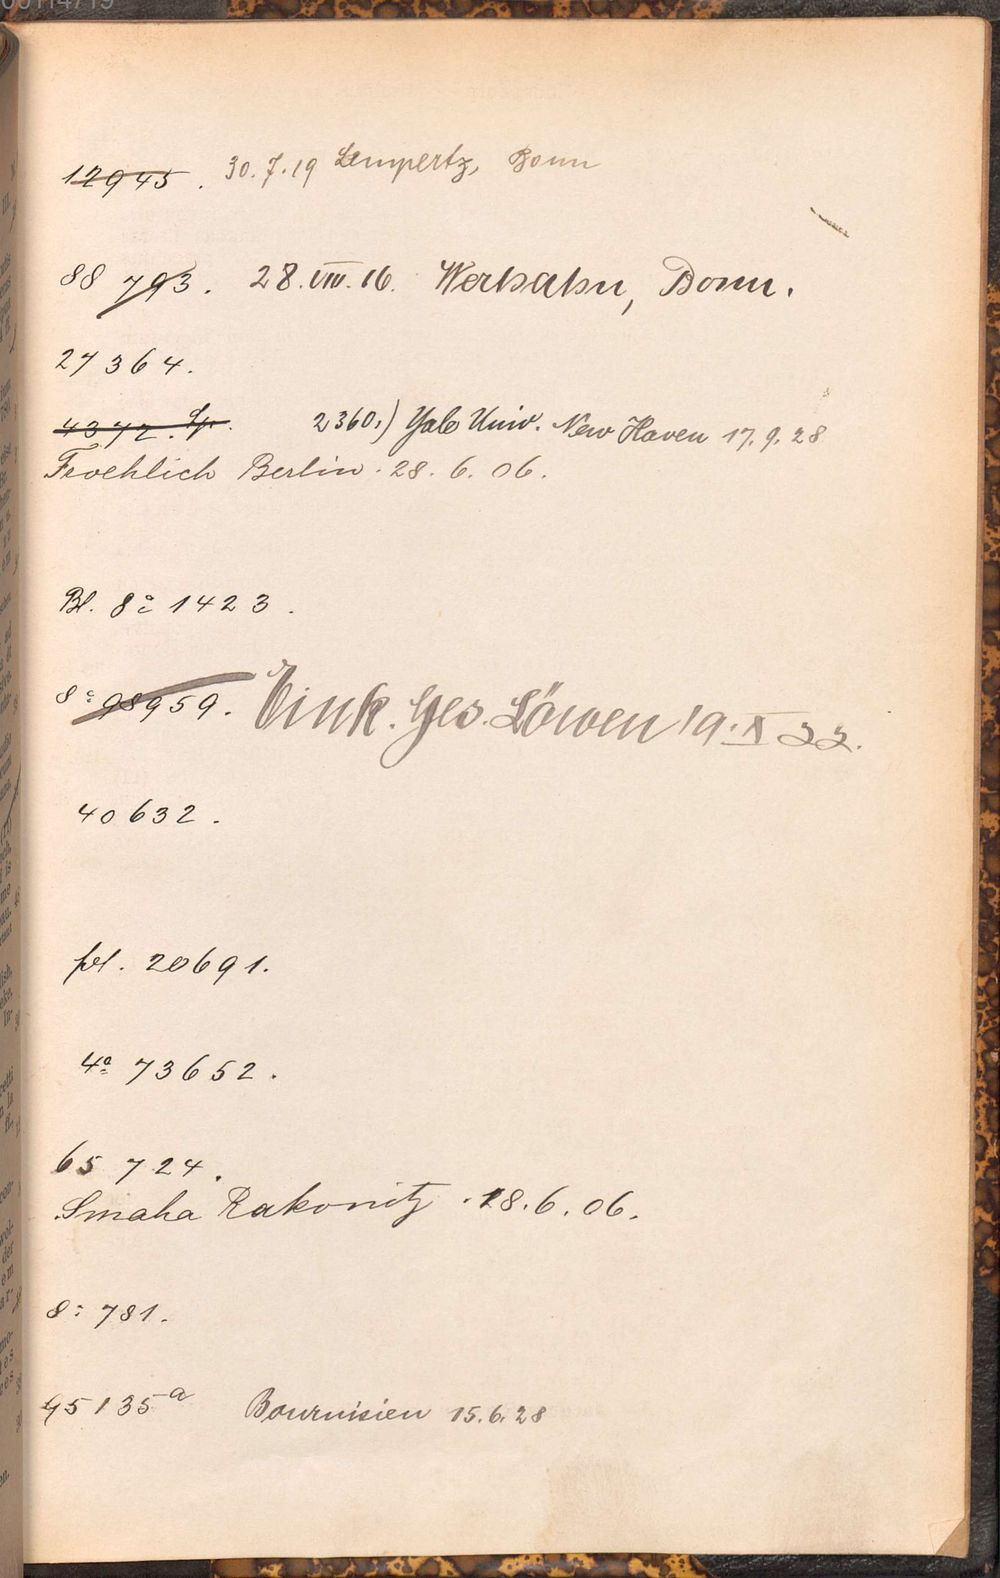 00114719
12945. 30.7.19 Lempertz, Bonn
88 793. 28.VIII.16. Werhahn, Bonn.
27364.
4372. 2360.) Yale Univ. New Haven 17.9.28
Froehlich Berlin. 28.6.06.
Bl. 8° 1423.
8° 98959. Eink. Ges. Löwen 19.X 22.
40632.
fol. 20691.
4° 73652.
65 724.
Smaha Rakonitz. 28.6.06.
8° 781.
95135 a Bournisien 15.6.28